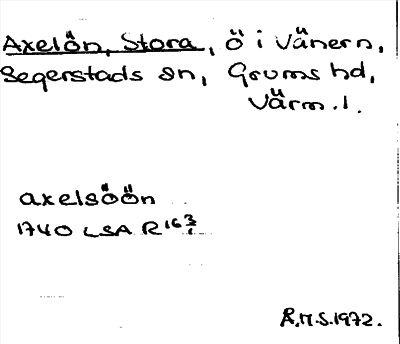 Axelön, Stora, ö i Vänern,
Segerstads sn, Grums hd,
Värm. l.
axelsöön
1740 LSA R16 3/1
R.M.S. 1972.